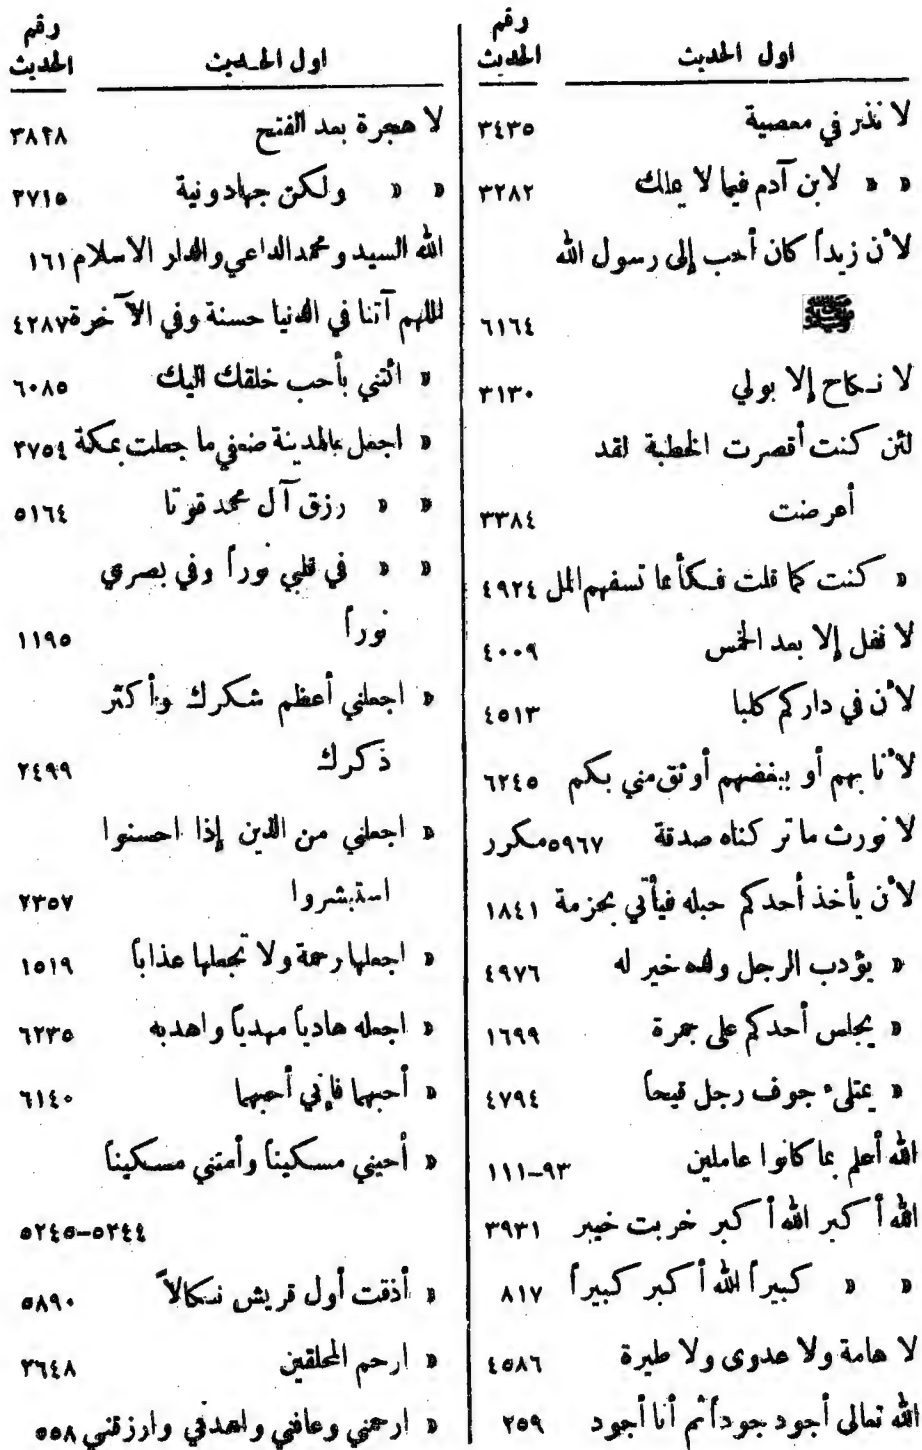 اول الحديث رقم الحديث
لا نذر في معصية ٣٤٣٥
« « لابن آدم فيما لا يملك ٣٢٨٢
لأن زيداً كان أحب إلى رسول الله
ﷺ ٦١٦٤
لا نكاح إلا بولي ٣١٣٠
لئن كنت أقصرت الخطبة لقد
أعرضت ٣٣٨٤
« كنت كما قلت فكأنما تسفهم المل ٤٩٢٤
لا نفل إلا بعد الخمس ٤٠٠٩
لأن في داركم كلبا ٤٥١٣
لأنا بهم أو ببغضهم أوثق مني بكم ٦٢٤٥
لا نورث ما تركناه صدقة ٥٩٦٧مكرر
لأن يأخذ أحدكم حبله فيأتي بحزمة ١٨٤١
« يؤدب الرجل ولده خير له ٤٩٧٦
« يجلس أحدكم على جمرة ١٦٩٩
« يمتلىء جوف رجل قيحاً ٤٧٩٤
الله أعلم بما كانوا عاملين ٩٣-١١١
الله أكبر الله أكبر خربت خيبر ٣٩٣١
« « كبيراً الله أكبر كبيراً ٨١٧
لا هامة ولا عدوى ولا طيرة ٤٥٨٦
الله تعالى أجود جوداً ثم أنا أجود ٢٥٩
اول الحديث رقم الحديث
لا هجرة بعد الفتح ٣٨٢٨
« « ولكن جهاد ونية ٢٧١٥
الله السيد ومحمد الداعي والدار الاسلام ١٦١
اللهم آتنا في الدنيا حسنة وفي الآخرة ٤٢٨٧
« ائتني بأحب خلقك اليك ٦٠٨٥
« اجعل بالمدينة ضعفي ما جعلت بمكة ٢٧٥٤
« « رزق آل محمد قوتا ٥١٦٤
« « في قلبي نوراً وفي بصري
نوراً ١١٩٥
« اجعلني أعظم شكرك وأكثر
ذكرك ٢٤٩٩
« اجعلني من الذين إذا احسنوا
استبشروا ٢٣٥٧
« اجعلها رحمة ولا تجعلها عذاباً ١٥١٩
« اجعله هادياً مهدياً واهد به ٦٢٣٥
« أحبهما فإني أحبهما ٦١٤٠
« أحيني مسكيناً وأمتني مسكيناً
٥٢٤٤-٥٢٤٥
« أذقت أول قريش نكالاً ٥٨٩٠
« ارحم المحلقين ٢٦٤٨
« ارحمني وعافني واهدني وارزقني ٥٥٨